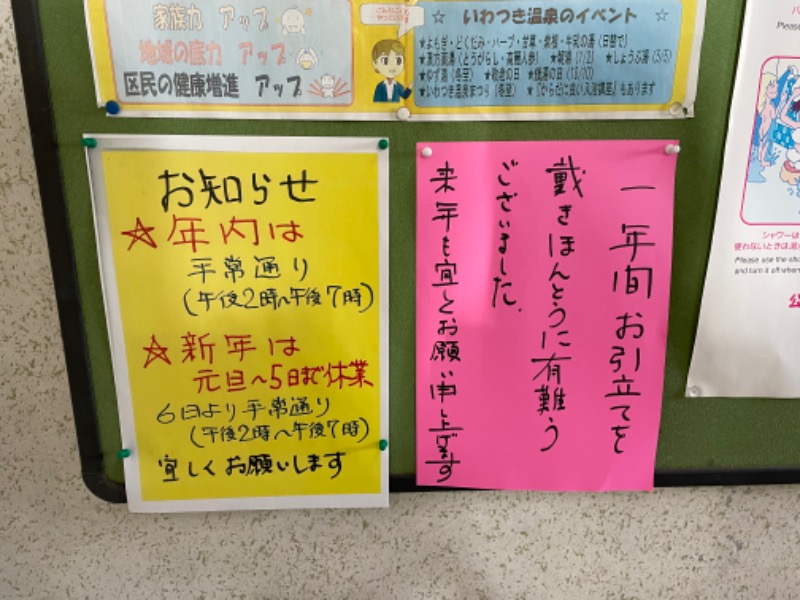 家族力 アップ
地域の底力 アップ
区民の健康増進 アップ
☆ いわつき温泉のイベント ☆
★よもぎ・どくだみ・ハーブ・甘草・
・牛乳の湯(日替で)
★漢方薬湯(とうがらし・高麗人参) ★
(7/2) ★しょうぶ湯(5/5)
★ゆず湯(冬至) ★敬老の日 ★銭湯の日(10/10)
★いわつき温泉まつり(冬至) ★『からだに良い入浴講座』もあります
お知らせ
☆年内は
平常通り
(午後2時〜午後7時)
☆新年は
元旦〜5日まで休業
6日より平常通り
(午後2時〜午後7時)
宜しくお願いします
一年間お引立てを
戴きほんとうに有難う
ございました.
来年も宜しくお願い申し上げます
Please
シャワーは
使わないときは
Please use the
and turn it off when